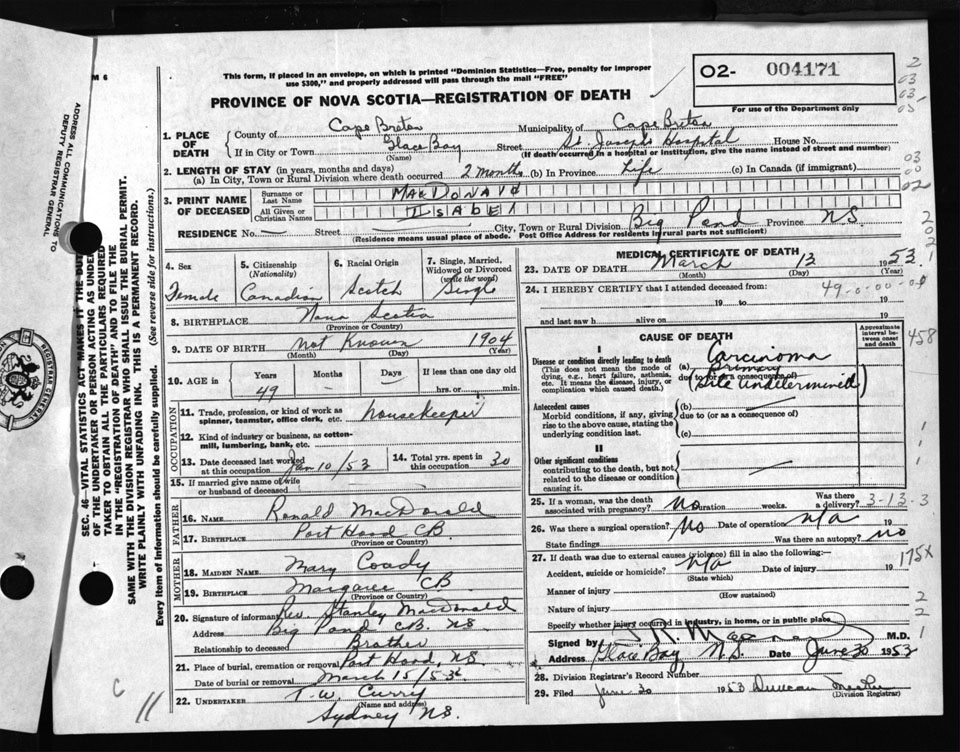 This form, if placed in an envelope, on which is printed "Dominion Statistics—Free, penalty for improper
use $300," and properly addressed will pass through the mail "FREE"
PROVINCE OF NOVA SCOTIA—REGISTRATION OF DEATH
02- 004171
For use of the Department only
2
03
03
05
M 6
ADDRESS ALL COMMUNICATIONS TO
DEPUTY REGISTRAR GENERAL
SEC. 46—VITAL STATISTICS ACT MAKES IT THE DUTY
OF THE UNDERTAKER OR PERSON ACTING AS UNDER-
TAKER TO OBTAIN ALL THE PARTICULARS REQUIRED
IN THE "REGISTRATION OF DEATH" AND TO FILE THE
SAME WITH THE DIVISION REGISTRAR WHO SHALL ISSUE THE BURIAL PERMIT.
WRITE PLAINLY WITH UNFADING INK. THIS IS A PERMANENT RECORD.
Every item of information should be carefully supplied. (See reverse side for instructions.)
1. PLACE OF DEATH
County of Cape Breton Municipality of Cape Breton
If in City or Town Glace Bay Street St. Joseph's Hospital House No.
(Name) (If death occurred in a hospital or institution, give the name instead of street and number)
2. LENGTH OF STAY (in years, months and days)
(a) In City, Town or Rural Division where death occurred 2 months (b) In Province Life (c) In Canada (if immigrant)
03
00
02
3. PRINT NAME OF DECEASED
Surname or Last Name MACDONALD
All Given or Christian Names ISABEL
RESIDENCE No. — Street — City, Town or Rural Division Big Pond Province NS
(Residence means usual place of abode. Post Office Address for residents in rural parts not sufficient)
4. Sex Female
5. Citizenship (Nationality) Canadian
6. Racial Origin Scotch
7. Single, Married, Widowed or Divorced (write the word) Single
8. BIRTHPLACE Nova Scotia
(Province or Country)
9. DATE OF BIRTH Not Known 1904
(Month) (Day) (Year)
10. AGE in Years 49 Months — Days — If less than one day old
hrs. or min.
OCCUPATION
11. Trade, profession, or kind of work as spinner, teamster, office clerk, etc. housekeeper
12. Kind of industry or business, as cotton-mill, lumbering, bank, etc.
13. Date deceased last worked at this occupation Jan 10/53
14. Total yrs. spent in this occupation 30
15. If married give name of wife or husband of deceased
FATHER
16. NAME Ronald MacDonald
17. BIRTHPLACE Port Hood CB
(Province or Country)
MOTHER
18. MAIDEN NAME Mary Coady
19. BIRTHPLACE Margaree CB
(Province or Country)
20. Signature of informant Rev. Stanley MacDonald
Address Big Pond CB. NS
Relationship to deceased Brother
21. Place of burial, cremation or removal Port Hood, NS.
Date of burial or removal March 15/53
22. UNDERTAKER T.W. Curry
(Name and address)
Sydney NS.
C 11
MEDICAL CERTIFICATE OF DEATH
23. DATE OF DEATH March 13 1953
(Month) (Day) (Year)
24. I HEREBY CERTIFY that I attended deceased from:
49-0-00-01
19 to 19
and last saw h alive on 19
CAUSE OF DEATH
Approximate interval between onset and death
458
I
Disease or condition directly leading to death
(This does not mean the mode of dying, e.g., heart failure, asthenia, etc. It means the disease, injury, or complication which caused death.)
(a) Carcinoma
due to (or as a consequence of)
Primary
(Site undetermined)
Antecedent causes
Morbid conditions, if any, giving rise to the above cause, stating the underlying condition last.
(b)
due to (or as a consequence of)
(c)
II
Other significant conditions
contributing to the death, but not related to the disease or condition causing it.
25. If a woman, was the death associated with pregnancy? No Duration weeks. Was there a delivery?
3-13-3
26. Was there a surgical operation? No Date of operation n/a 19
State findings Was there an autopsy? no
27. If death was due to external causes (violence) fill in also the following:—
Accident, suicide or homicide? n/a Date of injury 19
(State which)
175X
Manner of injury
(How sustained)
Nature of injury
Specify whether injury occurred in industry, in home, or in public place
Signed by M.D.
Address Glace Bay N.S. Date June 30 1953
28. Division Registrar's Record Number
29. Filed June 30 1953 Duncan
(Division Registrar)